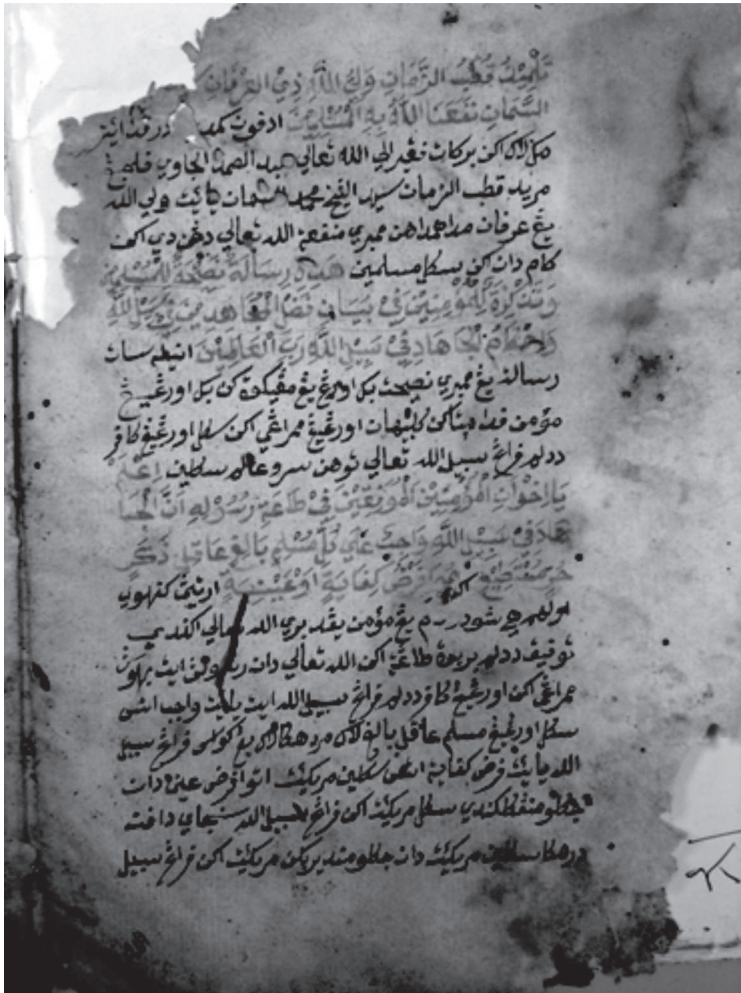 تِلْمِيْذُ قُطْبِ الزَّمَانِ وَلِيِّ اللّٰهِ ذِي الْعِرْفَانِ
السَّمَّانِ نَفَعَنَا اللّٰهُ بِهِ الْمُسْلِمِيْنَ ادفون
مك الله اكن بركات فقير الي الله تعالي عبد الصمد الجاوي فلمبڠ
مريد قطب الزمان سيد الشيخ محمد السمان يائيت ولي الله
يڠ عرفان مد همداهن ممبري منفعة الله تعالي دڠن دي اكن
كام دان اكن سكل مسلمين هَذِهِ رِسَالَةُ نَصِيْحَةٍ لِلْمُسْلِمِيْنَ
وَتَذْكِرَةٍ لِلْمُؤْمِنِيْنَ فِيْ بَيَانِ فَضْلِ الْمُجَاهِدِيْنَ فِيْ سَبِيْلِ اللّٰهِ
وَاَحْكَامِ الْجِهَادِ فِيْ سَبِيْلِ اللّٰهِ رَبِّ الْعَالَمِيْنَ انيله سات
رسالة يڠ ممبري نصيحت بكي اورڠ يڠ بكي اورڠيڠ
مؤمن فد مپتاكن كلبيهان اورڠيڠ ممراڠي اكن سكل اورڠيڠ كافر
ددالم فراڠ سبيل الله تعالي توهن سرو عالم سكلين اِعْلَمْ
يَا اِخْوَانِ الْمُؤْمِنِيْنَ الْمُوَفَّقِيْنَ فِيْ طَاعَةِ رَسُوْلِهِ اَنَّ الْجِ
هَادَ فِيْ سَبِيْلِ اللّٰهِ وَاجِبٌ عَلَي كُلِّ مُسْلِمٍ بَالِغٍ عَاقِلٍ ذَكَرٍ
حُرٍّ مُسْتَطِيْعٍ فَرْضُ كِفَايَةٍ اَوْ عَيْنِيَّةٍ ارتيڽ كتهوي
اولهم هي سودر يڠ مؤمن يڠ دبري الله تعالي اكندي
توفيق ددالم بربوة طاعة اكن الله تعالي دان رسولڽ ايت بهوس
ممراڠي اكن اورڠيڠ كافر ددالم فراڠ سبيل الله ايت يائيت واجب اتس
سكل اورڠيڠ مسلم عاقل بالغ لاكي مردهكا لاكي يڠ كواس فراڠ سبيل
الله يائيت فرض كفاية اتس سكلين مريكئيت اتو فرض عين دان
جكلو سكل مريكئيت اكن فراڠ سبيل الله دافت
درهكا سكلين مريكئيت دان جكلو منديريكن مريكئيت اكن فراڠ سبيل